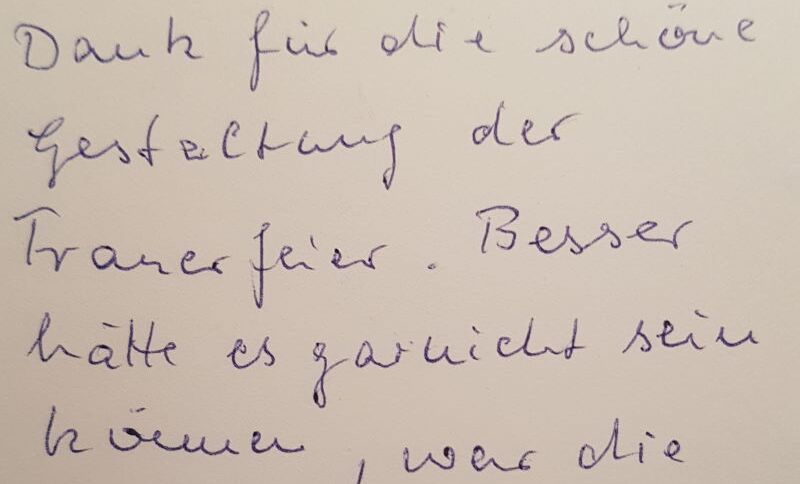 Dank für die schöne
Gestaltung der
Trauerfeier. Besser
hätte es garnicht sein
können, war die